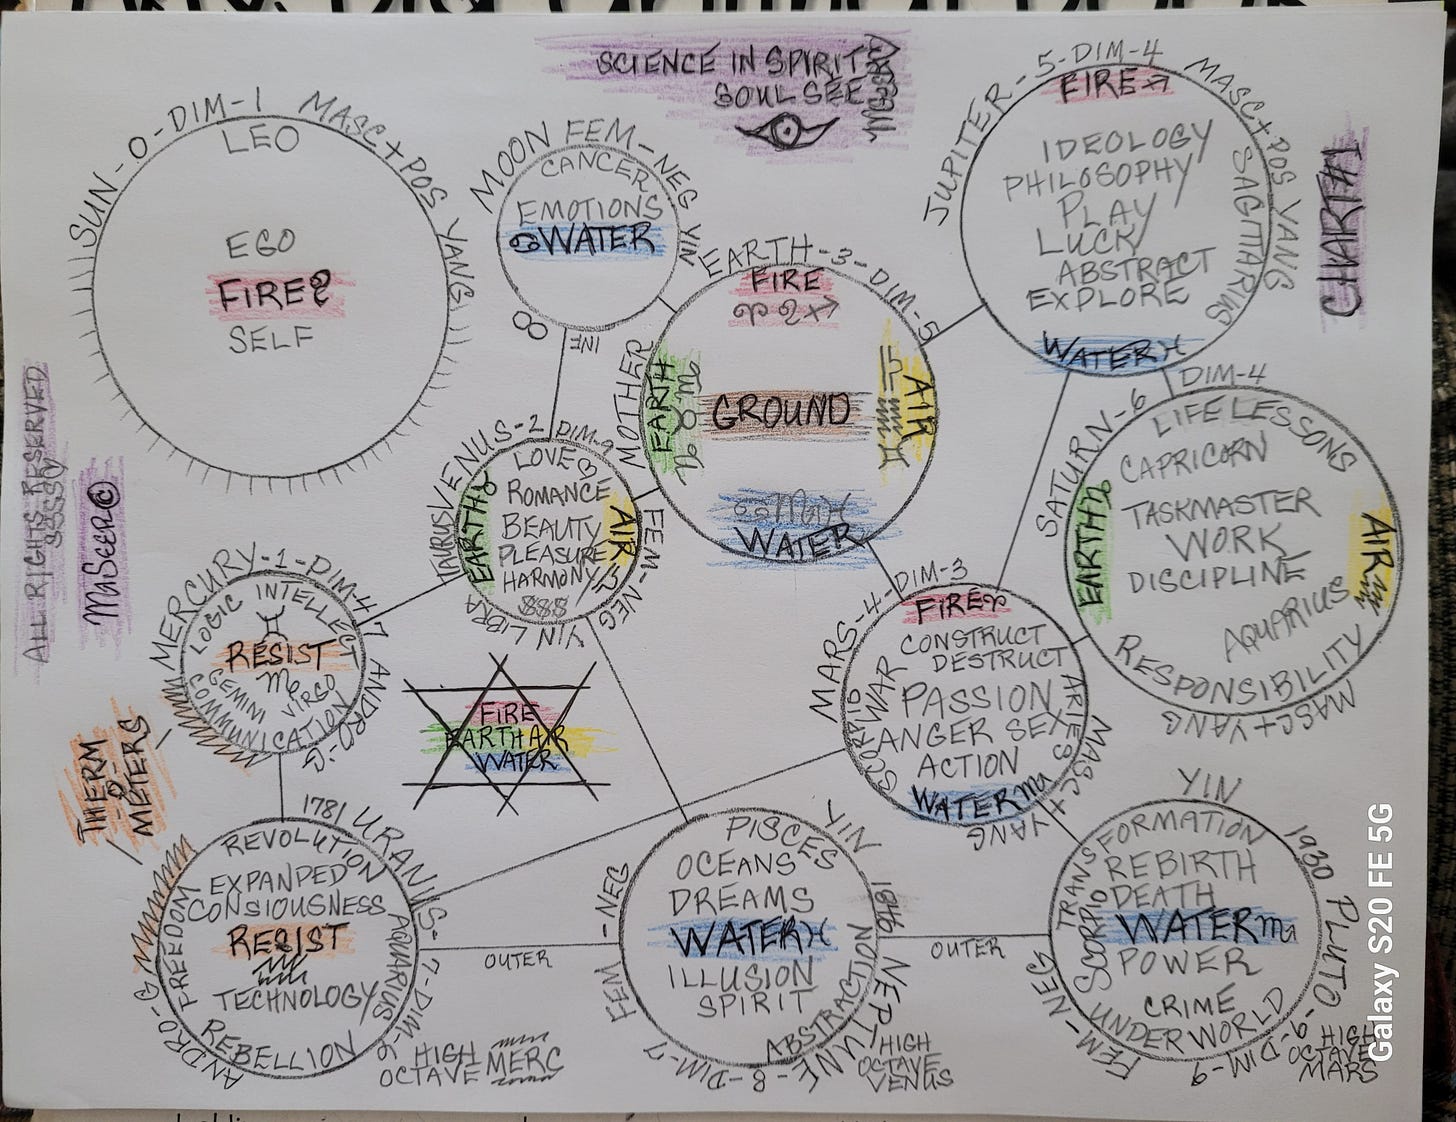 SCIENCE IN SPIRIT
SOUL SEE
CHART#1
ALL RIGHTS RESERVED
MaSeer©
SUN-0-DIM-1 MASC+POS YANG
LEO
EGO
FIRE♌
SELF
MOON FEM-NEG YIN
CANCER
EMOTIONS
♋WATER
∞ INF
MOTHER EARTH-3-DIM-5
FIRE
♈♌♐
EARTH
♑♉♍
GROUND
AIR
♎♒♊
♋♏♓
WATER
JUPITER-5-DIM-4 MASC+POS YANG
FIRE♐
IDEOLOGY
PHILOSOPHY
PLAY
LUCK
ABSTRACT
EXPLORE
SAGITTARIUS
WATER♓
SATURN-6 DIM-4
LIFE LESSONS
CAPRICORN
TASKMASTER
WORK
DISCIPLINE
EARTH♑
AIR♒
AQUARIUS
RESPONSIBILITY
MASC+YANG
VENUS-2 DIM-9
TAURUS
LOVE
ROMANCE
BEAUTY
PLEASURE
HARMONY
$$$
EARTH♉
AIR♎
FEM-NEG
YIN LIBRA
MERCURY-1-DIM-4
LOGIC INTELLECT
♊
RESIST
♍
GEMINI VIRGO
COMMUNICATION
ANDRO-G
THERM
O
METERS
FIRE
EARTH AIR
WATER
MARS-4-DIM-3
FIRE♈
CONSTRUCT
DESTRUCT
WAR
PASSION
ANGER SEX
ACTION
SCORPIO
ARIES
WATER♏
MASC+
YANG
1781 URANUS-7-DIM-6
REVOLUTION
EXPANDED
CONSIOUSNESS
RESIST
TECHNOLOGY
FREEDOM
AQUARIUS
REBELLION
ANDRO-G
HIGH
OCTAVE MERC
OUTER
PISCES
YIN
OCEANS
DREAMS
WATER♓
ILLUSION
SPIRIT
ABSTRACTION
FEM-NEG
1846 NEPTUNE-8-DIM-7
HIGH
OCTAVE
VENUS
OUTER
YIN
1930 PLUTO-9-DIM-9
TRANSFORMATION
REBIRTH
DEATH
WATER♏
POWER
CRIME
UNDERWORLD
SCORPIO
FEM-NEG
HIGH
OCTAVE
MARS
Galaxy S20 FE 5G